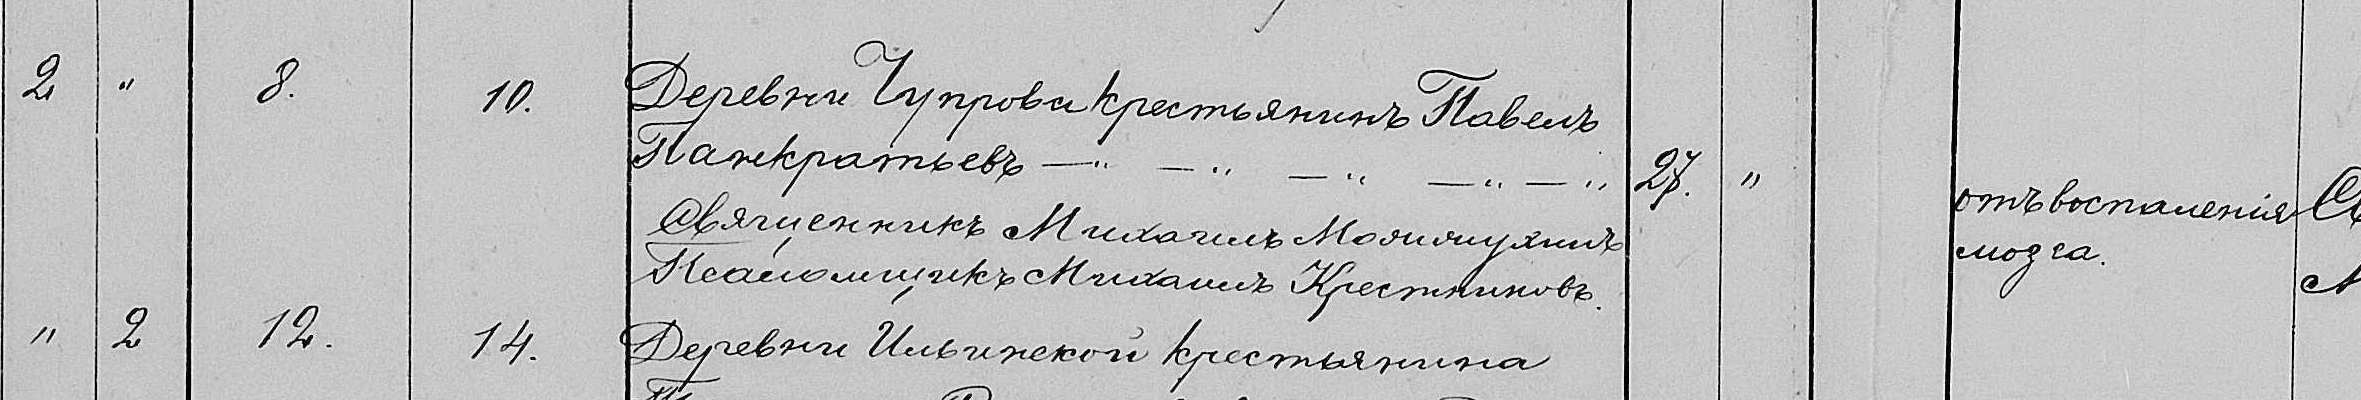 2 " 8. 10. Деревни Чупрова крестьянинъ Павелъ
Панкратьевъ —"— —"— —"— —"—"
27. "
Священникъ Михаилъ
отъ воспаленія
Псаломщикъ Михаилъ Крестниковъ.
мозга.
" 2 12. 14. Деревни Ильинской крестьянина